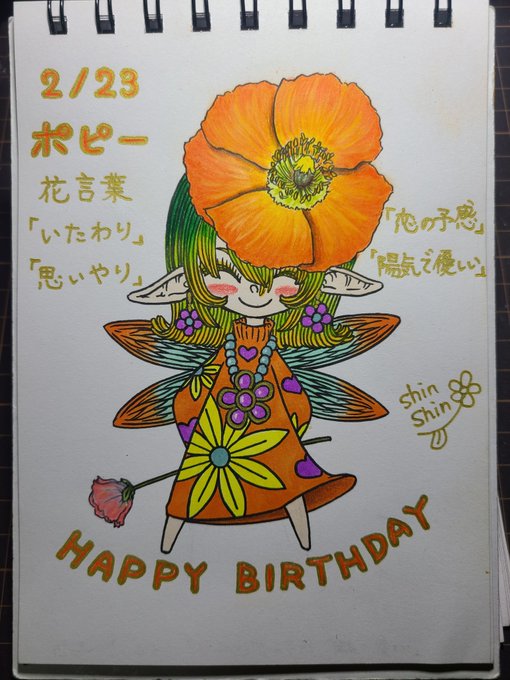 2/23
ポピー
花言葉
「いたわり」
「思いやり」
「恋の予感」
「陽気で優しい」
shin
shin
HAPPY BIRTHDAY